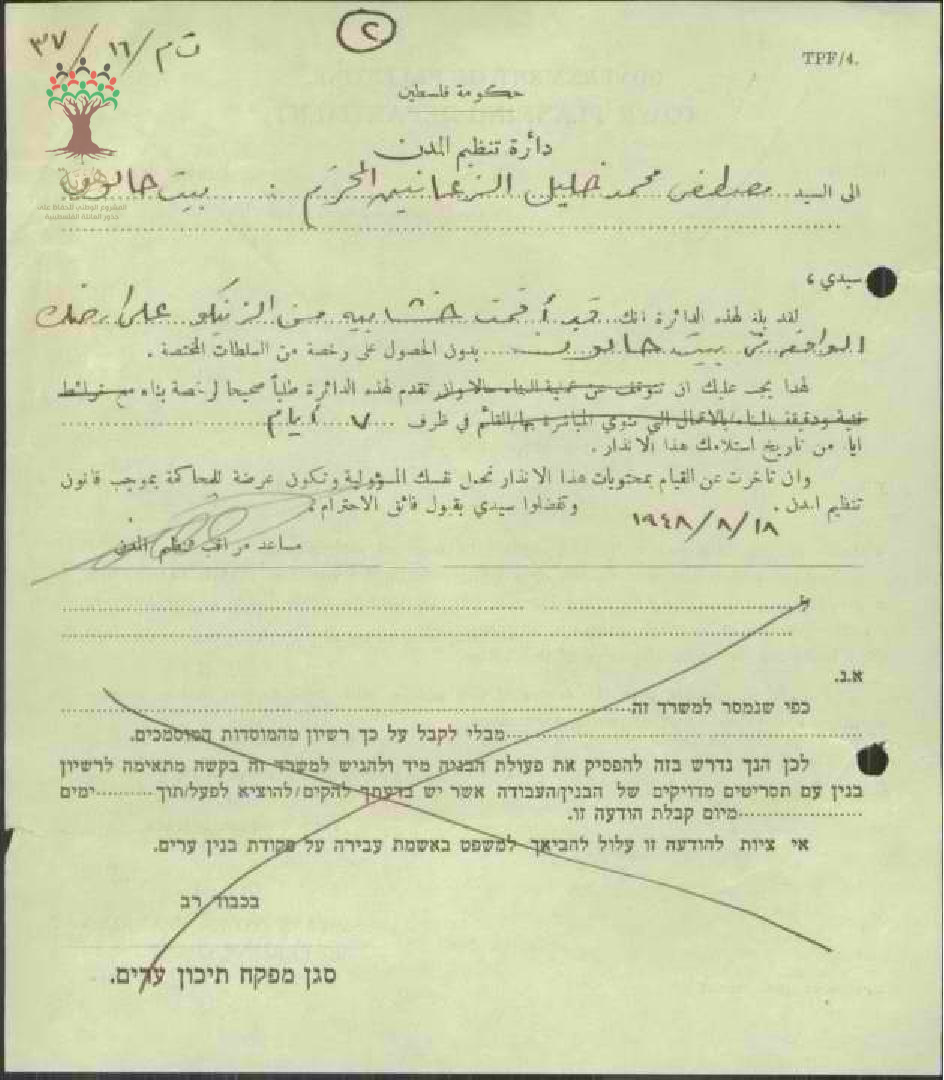 ت م / ١٦ / ٣٧
٢
TPF/4.
حكومة فلسطين
دائرة تنظيم المدن
الى السيد مصطفى محمد خليل الزعانين المحترم : بيت حانون
هوية
المشروع الوطني للحفاظ على
جذور العائلة الفلسطينية
سيدي ،
لقد بلغ لهذه الدائرة انك قد أقمت خشابيه من الزنيكو على أرضك
الواقعه في بيت حانون بدون الحصول على رخصة من السلطات المختصة .
لهذا يجب عليك ان تتوقف عن عملية البناء حالا وان تقدم لهذه الدائرة طلباً صحيحا لرخصة بناء مع خرائط
فنية ودقيقة للبناء/بالاعمال التي تنوي المباشرة بها/القائم في ظرف ٧ أيام
اياا من تاريخ استلامك هذا الانذار .
وان تأخرت عن القيام بمحتويات هذا الانذار تحمل نفسك المسؤولية وتكون عرضة للمحاكمة بموجب قانون
تنظيم المدن . وتفضلوا سيدي بقبول فائق الاحترام ،
١٩٤٨/٨/١٨
مساعد مراقب تنظيم المدن
א.נ.
כפי שנמסר למשרד זה
מבלי לקבל על כך רשיון מהמוסדות המוסמכים.
לכן הנך נדרש בזה להפסיק את פעולת הבניה מיד ולהגיש למשרד זה בקשה מתאימה לרשיון
בנין עם תסריטים מדויקים של הבנין/העבודה אשר יש בדעתך להקים/להוציא לפעל/תוך ימים
מיום קבלת הודעה זו.
אי ציות להודעה זו עלול להביאך למשפט באשמת עבירה על פקודת בנין ערים.
בכבוד רב
סגן מפקח תיכון ערים.